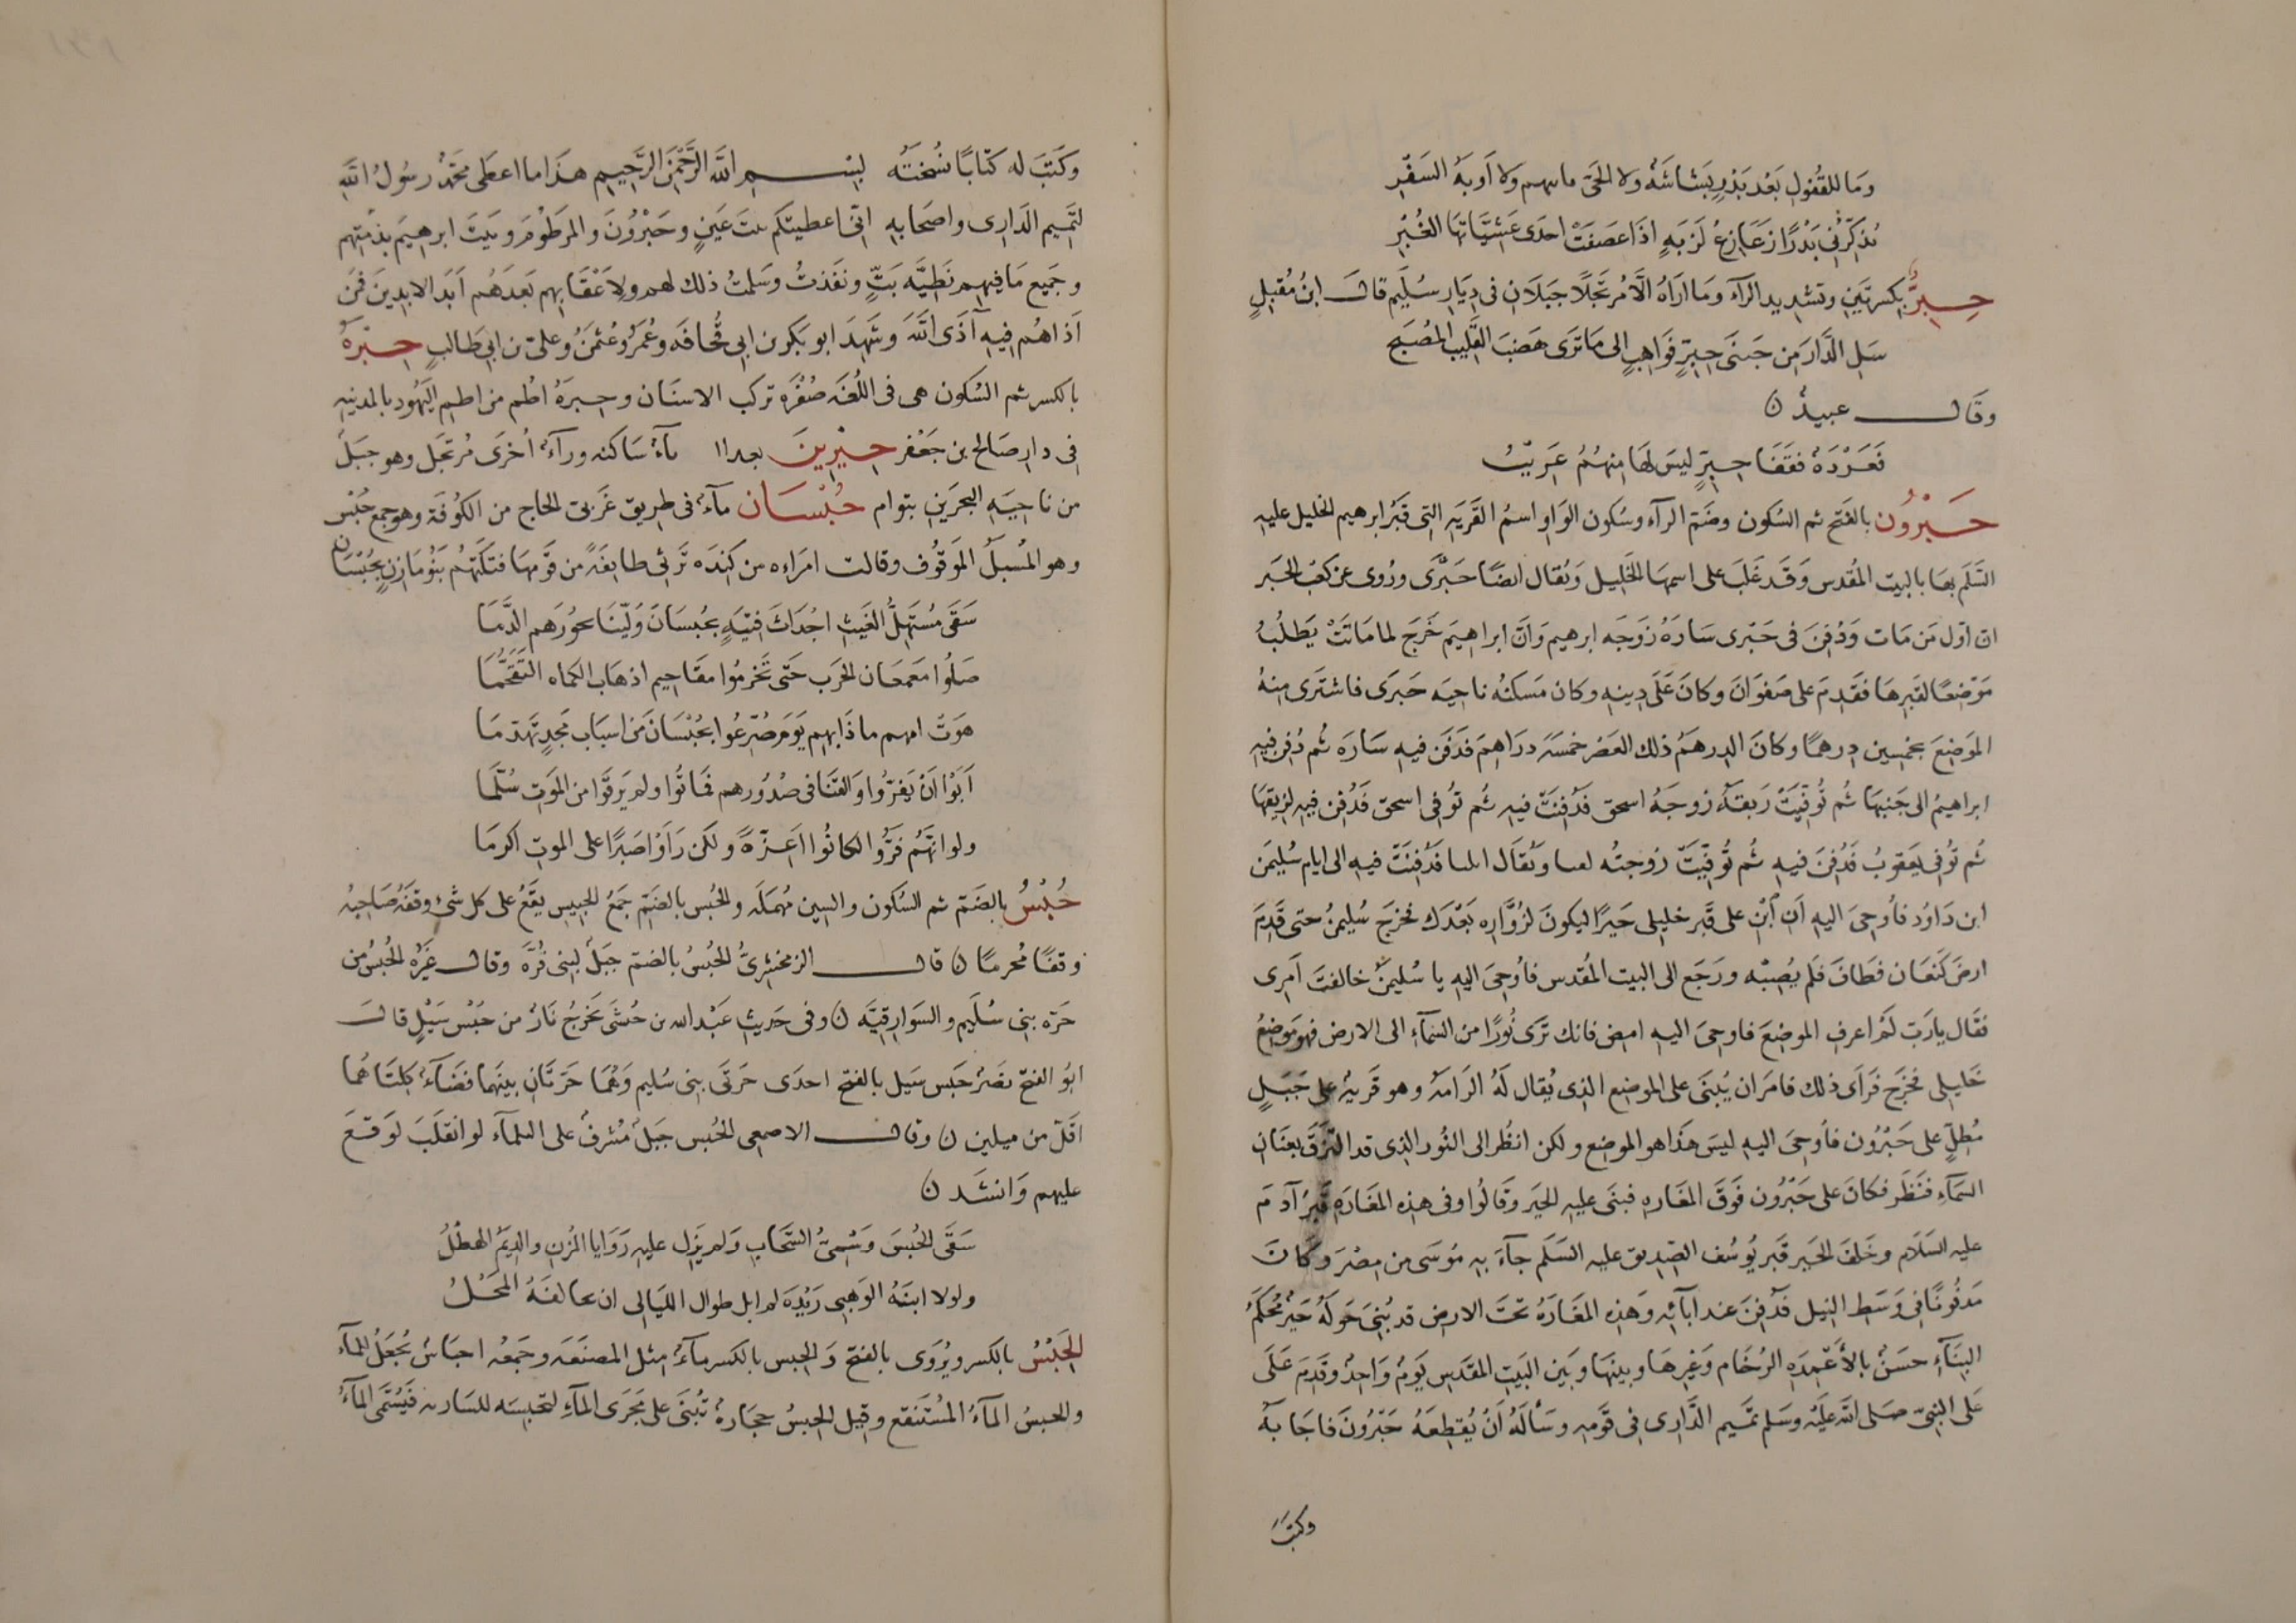 وَمَا للقُفُولِ بَعْدَ بَدْرٍ بَشَاشَةٌ ولا الحَىّ ولا اَوبَةُ السَفْرِ
تُذكّرُنى بَدْرًا زعَازِعُ لَزبَةٍ اذَا عصَفَتْ احدَى عَشِيَّاتهَا الغُبْرِ
حِبِرٌّ بكسرتَينِ وتشديد الرآء ومَا ارَاهُ الّا مُرتَجَلًا جَبلَانِ فى دِيَارِ سُلَيم قال ابنُ مُقبِلٍ
سَلِ الدَّارَ مِن جَنبَى حِبِرٍّ فَوَاهِبٍ الى مَا تَرى هَضبَ القَلِيبِ المُصَبَّحِ
وقال عبيدٌ
فَعَرْدَةٌ فقَفَا حِبِرٍّ ليسَ لهَا مِنهُمُ عَرِيْبُ
حَبْرُون بالفَتح ثم السُكون وضَم الرآء وسُكون الوَاو اسمُ القَرْيَةِ التى قَبرُ ابرهيم الخليل عليهِ
السَّلَم بهَا بالبيت المُقدس وَقَد غَلبَ على اسمهَا الخَليل وَيُقال ايضًا حَبْرَى ورُوى عن كعْب الحَبْر
انّ اوّل مَن مَات وَدُفِنَ فى حَبْرى سَارَةُ زَوجَه ابرهيم وَانَّ ابراهيمَ خَرَجَ لما مَاتَتْ يَطلُبُ
مَوْضِعًا لقَبرِهَا فقَدِمَ على صَفوَانَ وكانَ عَلَى دِينِهِ وكان مَسكنُه ناحِيَه حَبرَى فاشتَرى مِنهُ
الموَضِعَ بخمسين دِرهمًا وكانَ الدِرهمُ ذلك العَصْر خمسَةَ درَاهِمَ فَدَفَن فيهِ سَارَة ثُم دُفِن فيهِ
ابراهيمُ الى جَنبهَا ثُم تُوفِيَتْ رَبقَةُ زوجَةُ اسحق فدُفِنَتْ فيهِ ثُم تُوفى اسحق فَدُفِن فيهِ لزيقهَا
ثُم تُوفى يَعقوبُ فَدُفِنَ فيهِ ثُم تُوفِّيَتْ زوجتُه لعيا وَيُقَال ايليا فَدُفِنَتْ فيهِ الى ايام سُليمَن
ابن دَاوُد فأُوحِىَ اليهِ اَنِ ابْنِ على قَبرِ خليلى حَيرًا ليكونَ لزُوّارِه بَعْدَك فخرَجَ سُليمنُ حتى قَدِمَ
ارضَ كَنعَان فطَافَ فلَم يُصِبْه ورَجَع الى البيت المُقدس فأُوحِىَ اليهِ يا سُليمنُ خالفتَ اَمرِى
فقَال يا رَبّ لَم اعرفِ الموضِعَ فاوحِىَ اليهِ امضِ فانك تَرى نُورًا من السَّمآءِ الى الارضِ فهوَ مَوضِعُ
خَليلى فخرَج فَرَأى ذلك فامَر ان يُبْنَى على الموضِع الذِى يُقال لَهُ الرَامَةُ وهو قَريةٌ على جَبَلٍ
مُطِلٍّ على حَبْرُون فأُوحِىَ اليهِ ليسَ هَذَا هو الموضِع ولكن انظُر الى النُور الذِى قد التزَقَ بعنَان
السَّمَآءِ فنَظَر فكانَ على حَبْرُون فَوقَ المَغَارهِ فبنَى عليهِ الحَيرَ وقَالُوا وفى هذِهِ المَغَارَةِ قَبرُ آدَمَ
عليه السَلَام وخَلفَ الحَير قَبر يُوسُف الصِدِيق عليه السَلَم جَآءَ بِهِ مُوسَى من مِصْرَ وكانَ
مَدفُونًا فى وَسَطِ النِيل فَدُفِنَ عند ابآئِهِ وَهذهِ المَغَارَةُ تحتَ الارضِ قد بُنِىَ حَولَهُ حَيرٌ مُحكَمُ
البِنَآءِ حسَنٌ بالأَعمِدَةِ الرُخَام وَغيرِهَا وبينهَا وبَين البَيتِ المقَدس يَومٌ وَاحِدٌ وقَدِمَ عَلَى
عَلى النَبِىّ صَلى الله عليْه وسَلم تَميم الدَّارِى فى قَومِهِ وسَأَلَهُ اَنْ يُقطِعَهُ حَبْرُونَ فاجَابَهُ
وكتبَ
وكَتَبَ له كتَابًا نُسْختُه بِسْمِ اللهِ الرَّحْمَنِ الرَّحِيم هذَا ما اعطى محَمّدٌ رسُولُ اللهِ
لتَميم الدَارِى واصحَابِهِ انى اعطيتكم بيتَ عَينٍ وحَبْرُونَ والمرَطُومَ وبَيتَ ابرهيمَ بذِمَّتهم
وجَميع مَا فيهم نَطِيَّه بَتٍّ ونفَذتُ وسَلمتُ ذلك لهم ولِاَعْقَابِهم بَعدَهُم اَبَدَ الابِدِينَ فمَن
آذاهُم فيهِ آذَى اللهَ وشَهِدَ ابو بكر بن ابى قُحافَه وعُمَرُ وعُثمنُ وعلىّ بن ابى طَالبٍ حِبْرَةُ
بالكسر ثم السُكون هى فى اللُغَه صُفْرَة تركب الاسنَان وحِبرَةُ اُطُم من اطُم اليَهُود بالمدِينَهِ
فى دارِ صَالح بن جَعْفر حِبِرِينَ مآءٌ سَاكنه ورآءٌ أُخرَى مُرتجَل وهو جبَلٌ
من ناحِيَهِ البحرَينِ بتوام حُبْسَان مآءٌ فى طريق غَربى الحاجِ من الكوُفة وهو جمع حُبْس
وهو المُسبَلُ الموَقُوف وقالت امرَاه من كِندَه تَرثى طايفَةً من قَومِهَا قتلَتْهُم بَنُو مَازنٍ بحُبْسَان
سَقَى مُستهِلُّ الغَيثِ اجْدَاثَ فِتيَةٍ بحُبسَانَ وَلّينَا نحُورَهم الدَّمَا
صَلُوا مَعمعَان الحَرب حَتى تَخرمُوا مقَاحيم اذ هَاب الكماه التقَحُّمَا
هَوَتْ امهم ماذَا بهِم يَومَ صُرّعُوا بحُبْسَانَ مَن اسبَاب مَجدٍ تَهدّمَا
اَبَوْا اَنْ يَفِرّوا وَالقنَا فى صُدُورِهم فمَاتُوا ولم يَرقَوا من المَوتِ سُلّمَا
ولو انهُم فرُّوا لكانُوا اَعِزّةً ولكن رَأَوْا صَبرًا على الموتِ اكرمَا
حُبْسٌ بالضَمّ ثم السُكون والسين مُهمَلَه والحُبس بالضَمّ جَمعُ الحَبيس يقَعُ على كل شىءٍ وقفَهُ صَاحِبُه
وقفًا مُحرمًا قال الزمخشرِىُّ الحُبْسُ بالضمّ جبَلٌ لبنى قُرَّة وقال غَيرُه الحُبْسُ من
حَرّه بنِى سُلَيم والسوَارِقيّه وفى حَديثِ عَبْد الله بن حُبشى تخرُجُ نَارٌ من حَبْسِ سَيْلٍ قال
ابُو الفتح نصرٌ حَبس سَيل بالفتح احدَى حَرتَى بنِى سُليم وَهُمَا حَرتَانِ بينَهما فضَآءٌ كِلتَاهُمَا
اقلّ من ميلين وقال الاصمعى الحُبس جبَلٌ مُشرفٌ على السَلمآء لو انقلَبَ لوَقعَ
عليهم وَانشَد
سَقَى الحُبْسَ وَسْمِىُّ السَّحَابِ وَلم يَزِل عليهِ رَوَايَا المُزنِ والدِيَمُ الهُطْلُ
ولولا ابنَةُ الوَهبِى زبْدَة لم ابل طوَالَ الليَالى ان يحالفَهُ المَحْلُ
الحِبْسُ بالكسر ويُروَى بالفتح وَالحِبس بالكسر مآءٌ مثل المصنَعَه وجَمعُه احبَاسٌ تُجعَلُ للمآء
والحِبسُ المآءُ المُستَنقع وقيل الحِبسُ حجَارةٌ تُبْنَى على مَجرَى المآءِ لتحبسَه للسَارِبه فيُسَمّى المآءُ